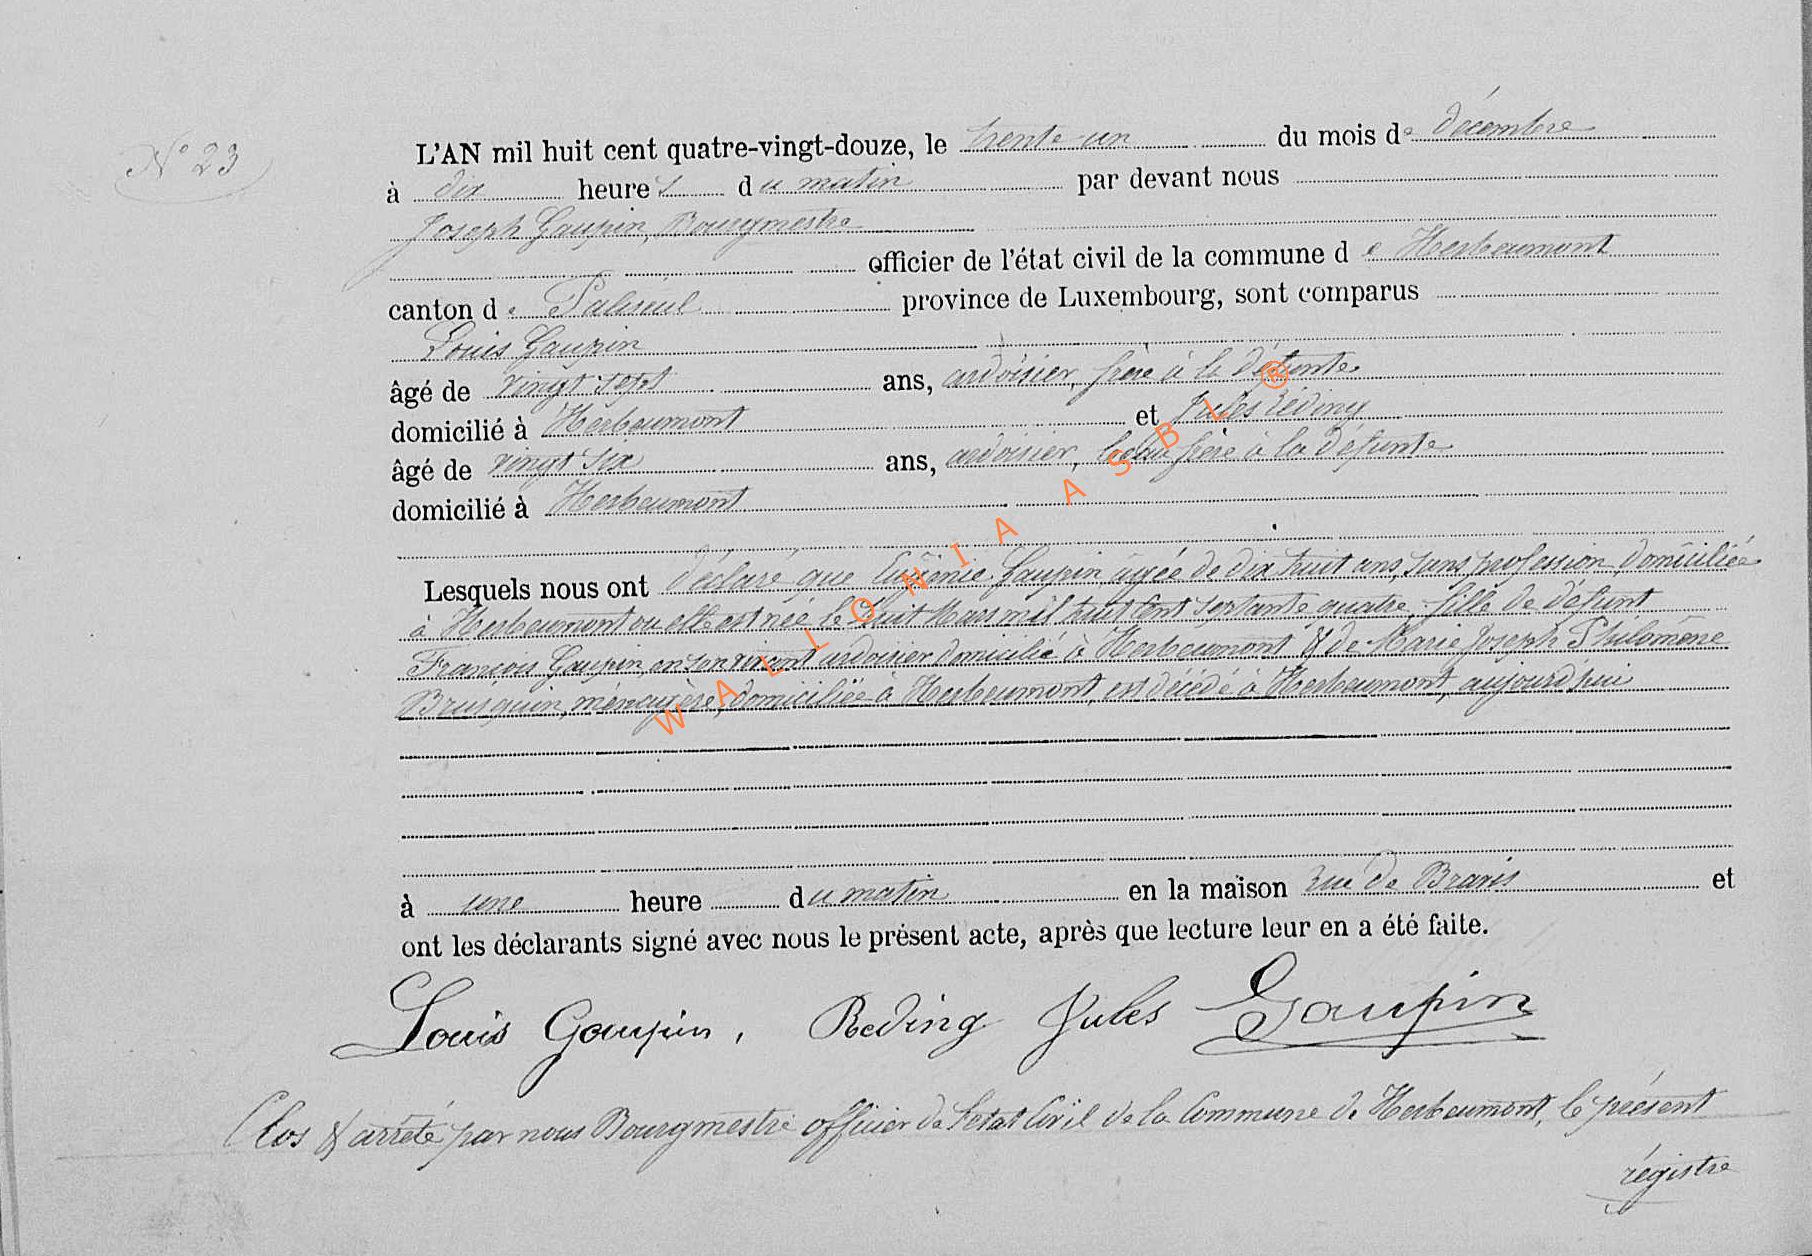 N° 23
L'AN mil huit cent quatre-vingt-douze, le trente un du mois de décembre
à dix heures du matin par devant nous
Joseph Gaupin, Bourgmestre
officier de l'état civil de la commune de Herbeumont
canton de Paliseul province de Luxembourg, sont comparus
Louis Gaupin
âgé de vingt sept ans, ardoisier, frère à la défunte
domicilié à Herbeumont et Jules Réding
âgé de vingt six ans, ardoisier, beau frère à la défunte
domicilié à Herbeumont
Lesquels nous ont déclaré que Eugénie Gaupin âgée de dix huit ans, sans profession, domiciliée
à Herbeumont ou elle est née le huit Mars mil huit cent septante quatre fille de défunt
François Gaupin, en son vivant ardoisier domicilié à Herbeumont & de Marie Joseph Philomène
Brusquin, ménagère, domiciliée à Herbeumont, est décédé à Herbeumont, aujourd'hui
à une heure du matin en la maison rue de Bravis et
ont les déclarants signé avec nous le présent acte, après que lecture leur en a été faite.
Louis Gaupin, Reding Jules Gaupin
Clos & arrêté par nous Bourgmestre officier de l'état Civil de la Commune de Herbeumont, le présent
régistre
WALLONIA ASBL ®